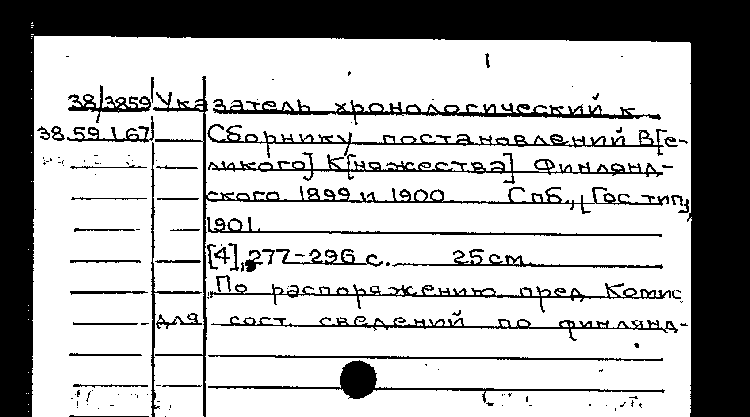 1
38/3859 Указатель хронологический к
38.59.1.67 Сборнику постановлений В[е-
ликого] К[няжества] Финлянд-
ского 1899 и 1900. Спб., [Гос. тип.,
1901.
[4], 277-296 с. 25 см.
По распоряжению пред. Комис.
для сост. сведений по финлянд-